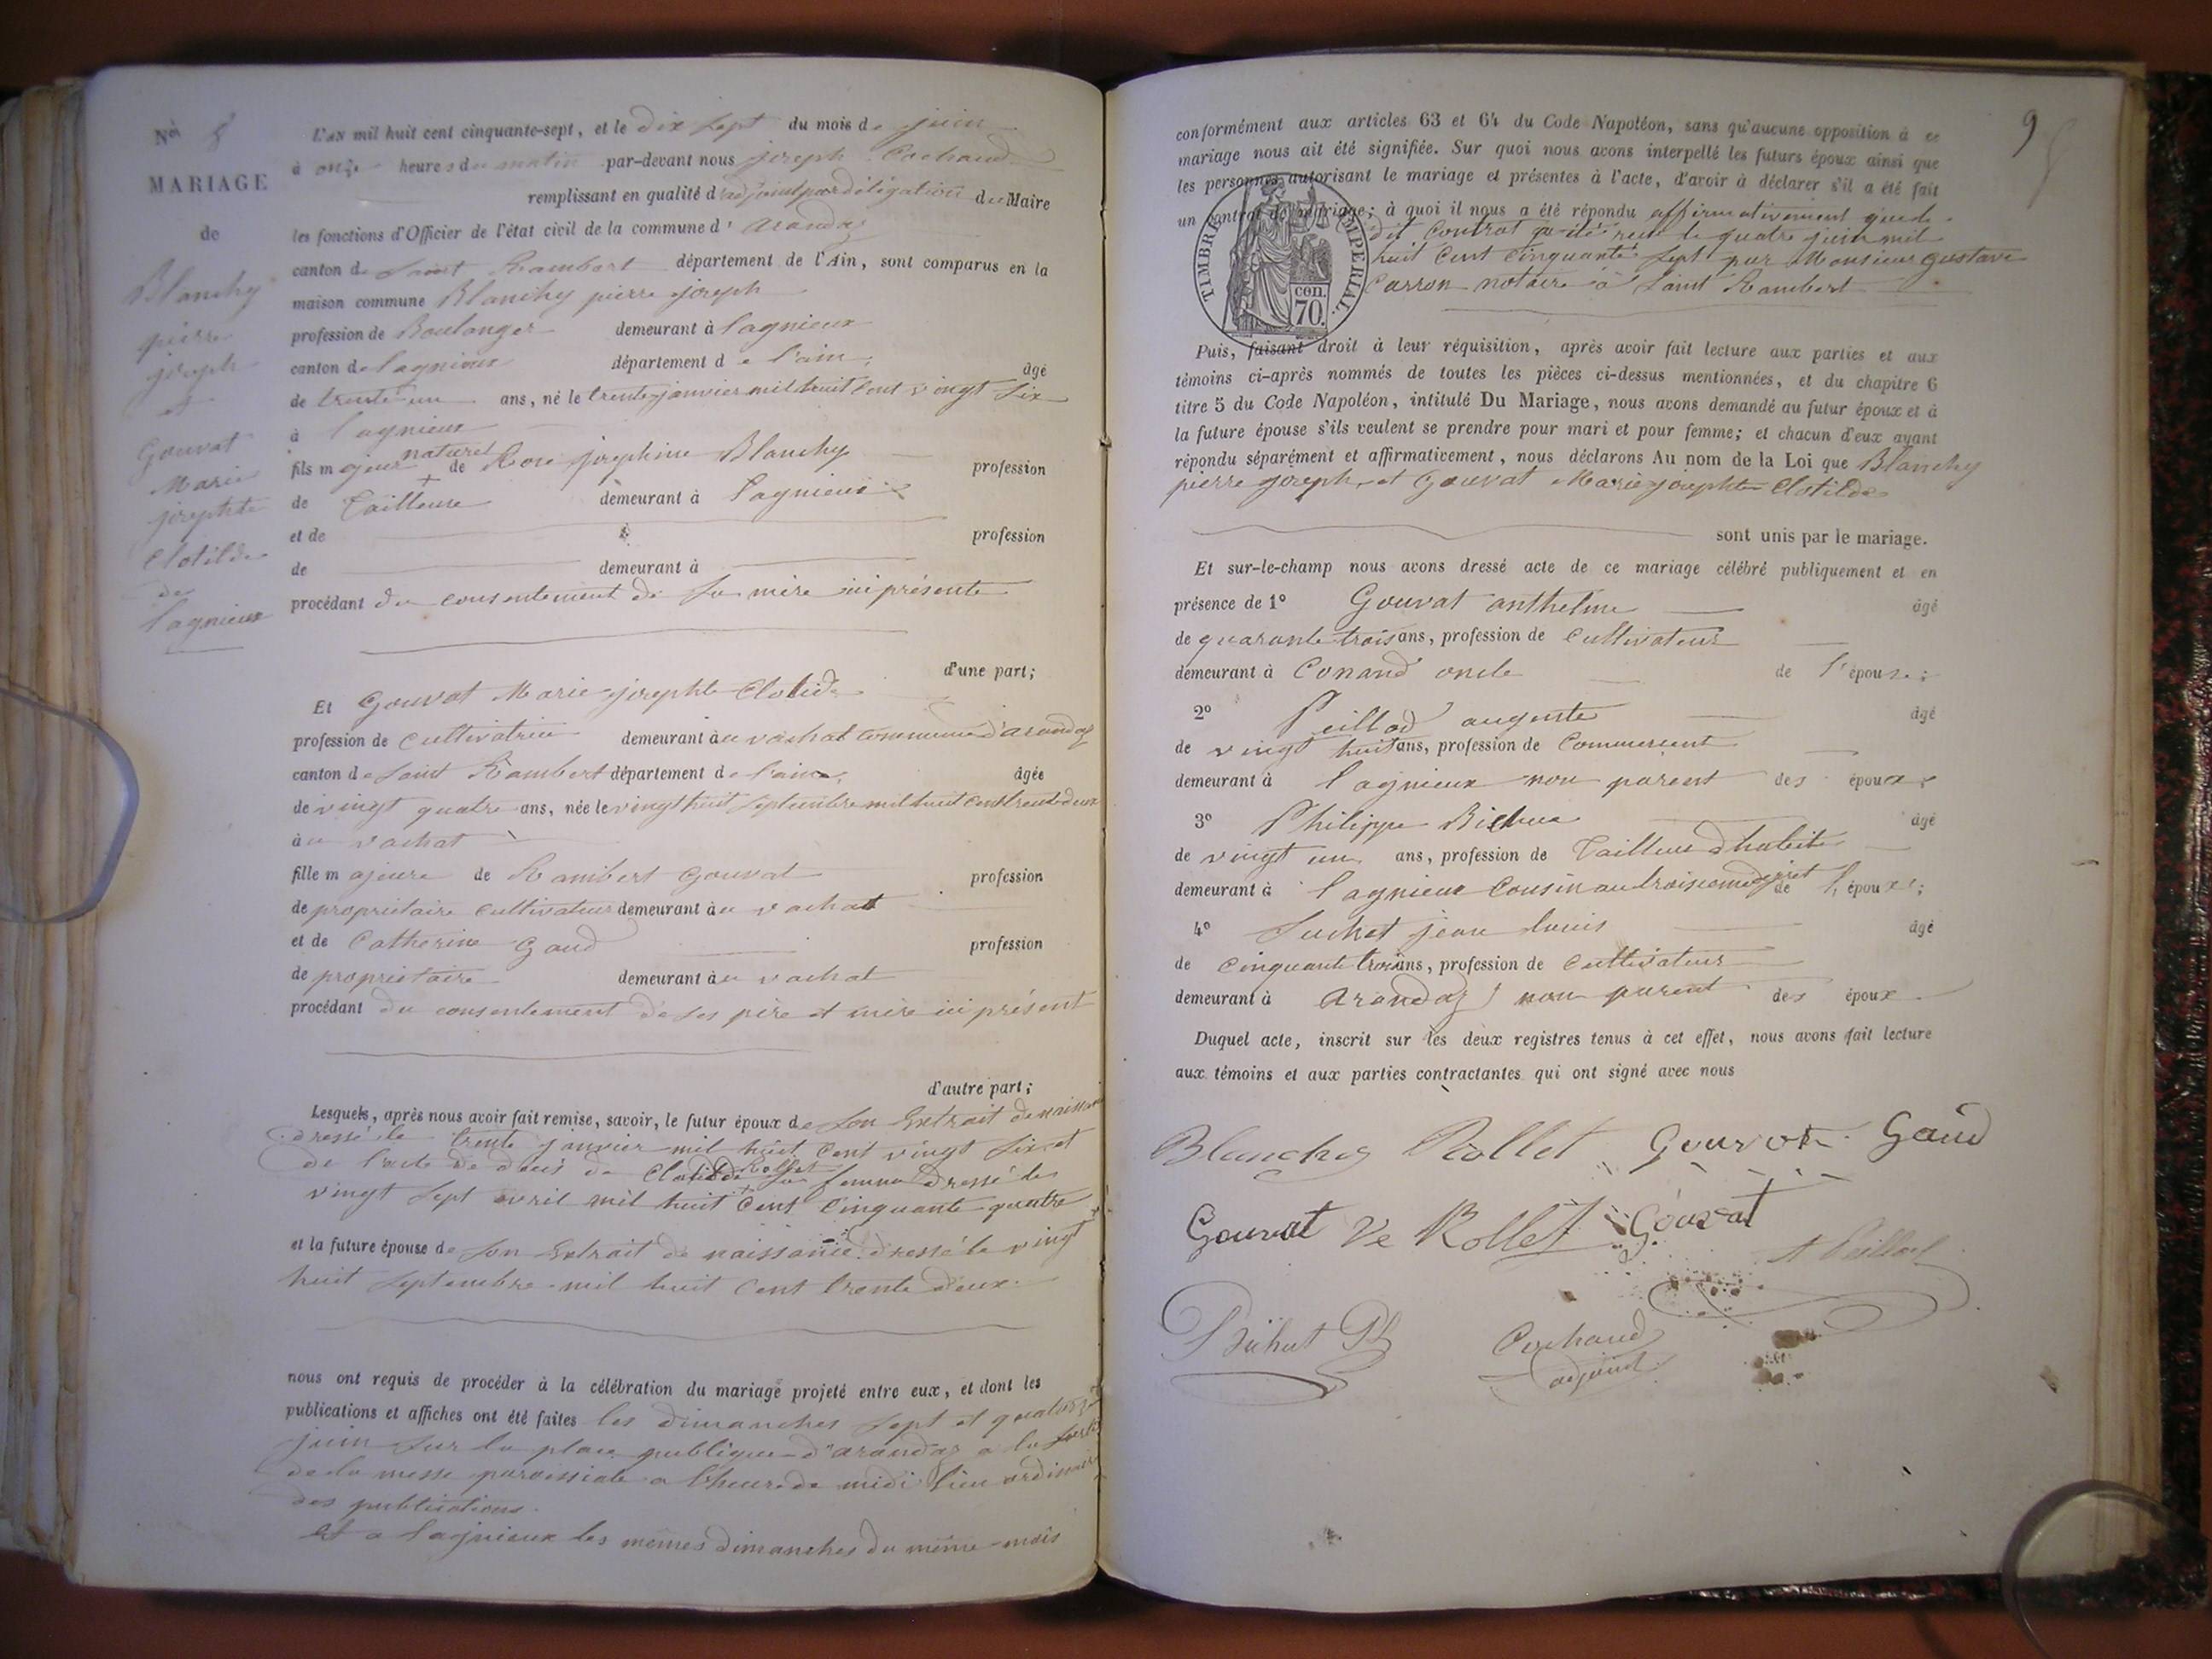 No 8
MARIAGE
de
Blanchy
pierre
joseph
et
Gouvat
Marie
josephte
Clotilde
de
lagnieux
L'an mil huit cent cinquante-sept, et le dix sept du mois de juin
à onze heures du matin par-devant nous joseph Cochaud
remplissant en qualité d'adjoint par délégation du Maire
les fonctions d'Officier de l'état civil de la commune d'arandaz
canton de Saint Rambert département de l'Ain, sont comparus en la
maison commune Blanchy pierre joseph
profession de Boulanger demeurant à lagnieux
canton de lagnieux département de l'ain, âgé
de trente un ans, né le trente janvier mil huit cent vingt six
à lagnieux
fils majeur naturel de Rose josephine Blanchy profession
de Tailleuse demeurant à lagnieux
et de profession
de demeurant à
procédant du consentement de sa mère ici présente
d'une part;
Et Gouvat Marie josephte Clotilde
profession de cultivatrice demeurant au vachat commune d'arandaz
canton de saint Rambert département de l'ain, âgée
de vingt quatre ans, née le vingt huit septembre mil huit cent trente deux
au vachat
fille majeure de Rambert Gouvat profession
de propriétaire cultivateur demeurant au vachat
et de Catherine Gaud profession
de propriétaire demeurant au vachat
procédant du consentement de ses père et mère ici présent
d'autre part;
Lesquels, après nous avoir fait remise, savoir, le futur époux de son Extrait de naissance
dressé le trente janvier mil huit cent vingt six et
de l'acte de décès de Clotilde Rollet sa femme dressé le
vingt sept avril mil huit cent cinquante quatre
et la future épouse de son Extrait de naissance dressé le vingt
huit septembre mil huit cent trente deux
nous ont requis de procéder à la célébration du mariage projeté entre eux, et dont les
publications et affiches ont été faites les dimanches sept et quatorze
juin sur la place publique d'arandaz a la sortie
de la messe paroissiale a l'heure de midi lieu ordinaire
des publications.
et a lagnieux les mêmes dimanches du même mois
9
conformément aux articles 63 et 64 du Code Napoléon, sans qu'aucune opposition à ce
mariage nous ait été signifiée. Sur quoi nous avons interpellé les futurs époux ainsi que
les personnes autorisant le mariage et présentes à l'acte, d'avoir à déclarer s'il a été fait
un contrat de mariage; à quoi il nous a été répondu affirmativement que le
dit contrat a été reçu le quatre juin mil
huit cent cinquante sept par Monsieur gustave
Carron notaire à Saint Rambert
TIMBRE IMPERIAL.
cen.
70.
Puis, faisant droit à leur réquisition, après avoir fait lecture aux parties et aux
témoins ci-après nommés de toutes les pièces ci-dessus mentionnées, et du chapitre 6
titre 5 du Code Napoléon, intitulé Du Mariage, nous avons demandé au futur époux et à
la future épouse s'ils veulent se prendre pour mari et pour femme; et chacun d'eux ayant
répondu séparément et affirmativement, nous déclarons Au nom de la Loi que Blanchy
pierre joseph et Gouvat Marie josephte Clotilde
sont unis par le mariage.
Et sur-le-champ nous avons dressé acte de ce mariage célébré publiquement et en
présence de 1º Gouvat anthelme âgé
de quarante trois ans, profession de cultivateur
demeurant à Conand oncle de l'épouse;
2º Peillod auguste âgé
de vingt huit ans, profession de Commercant
demeurant à lagnieux non parent des époux
3º Philippe âgé
de vingt un ans, profession de Tailleur d'habits
demeurant à lagnieux Cousin au troisieme degret de l'époux;
4º Suchet jean louis âgé
de cinquante trois ans, profession de cultivateur
demeurant à Arandaz non parent des époux
Duquel acte, inscrit sur les deux registres tenus à cet effet, nous avons fait lecture
aux témoins et aux parties contractantes qui ont signé avec nous
Blanchy Rollet Gouvat Gaud
Gouvat Ve Rollet Gouvat
A Peillod
Bichut Ph
Cochaud
adjoint